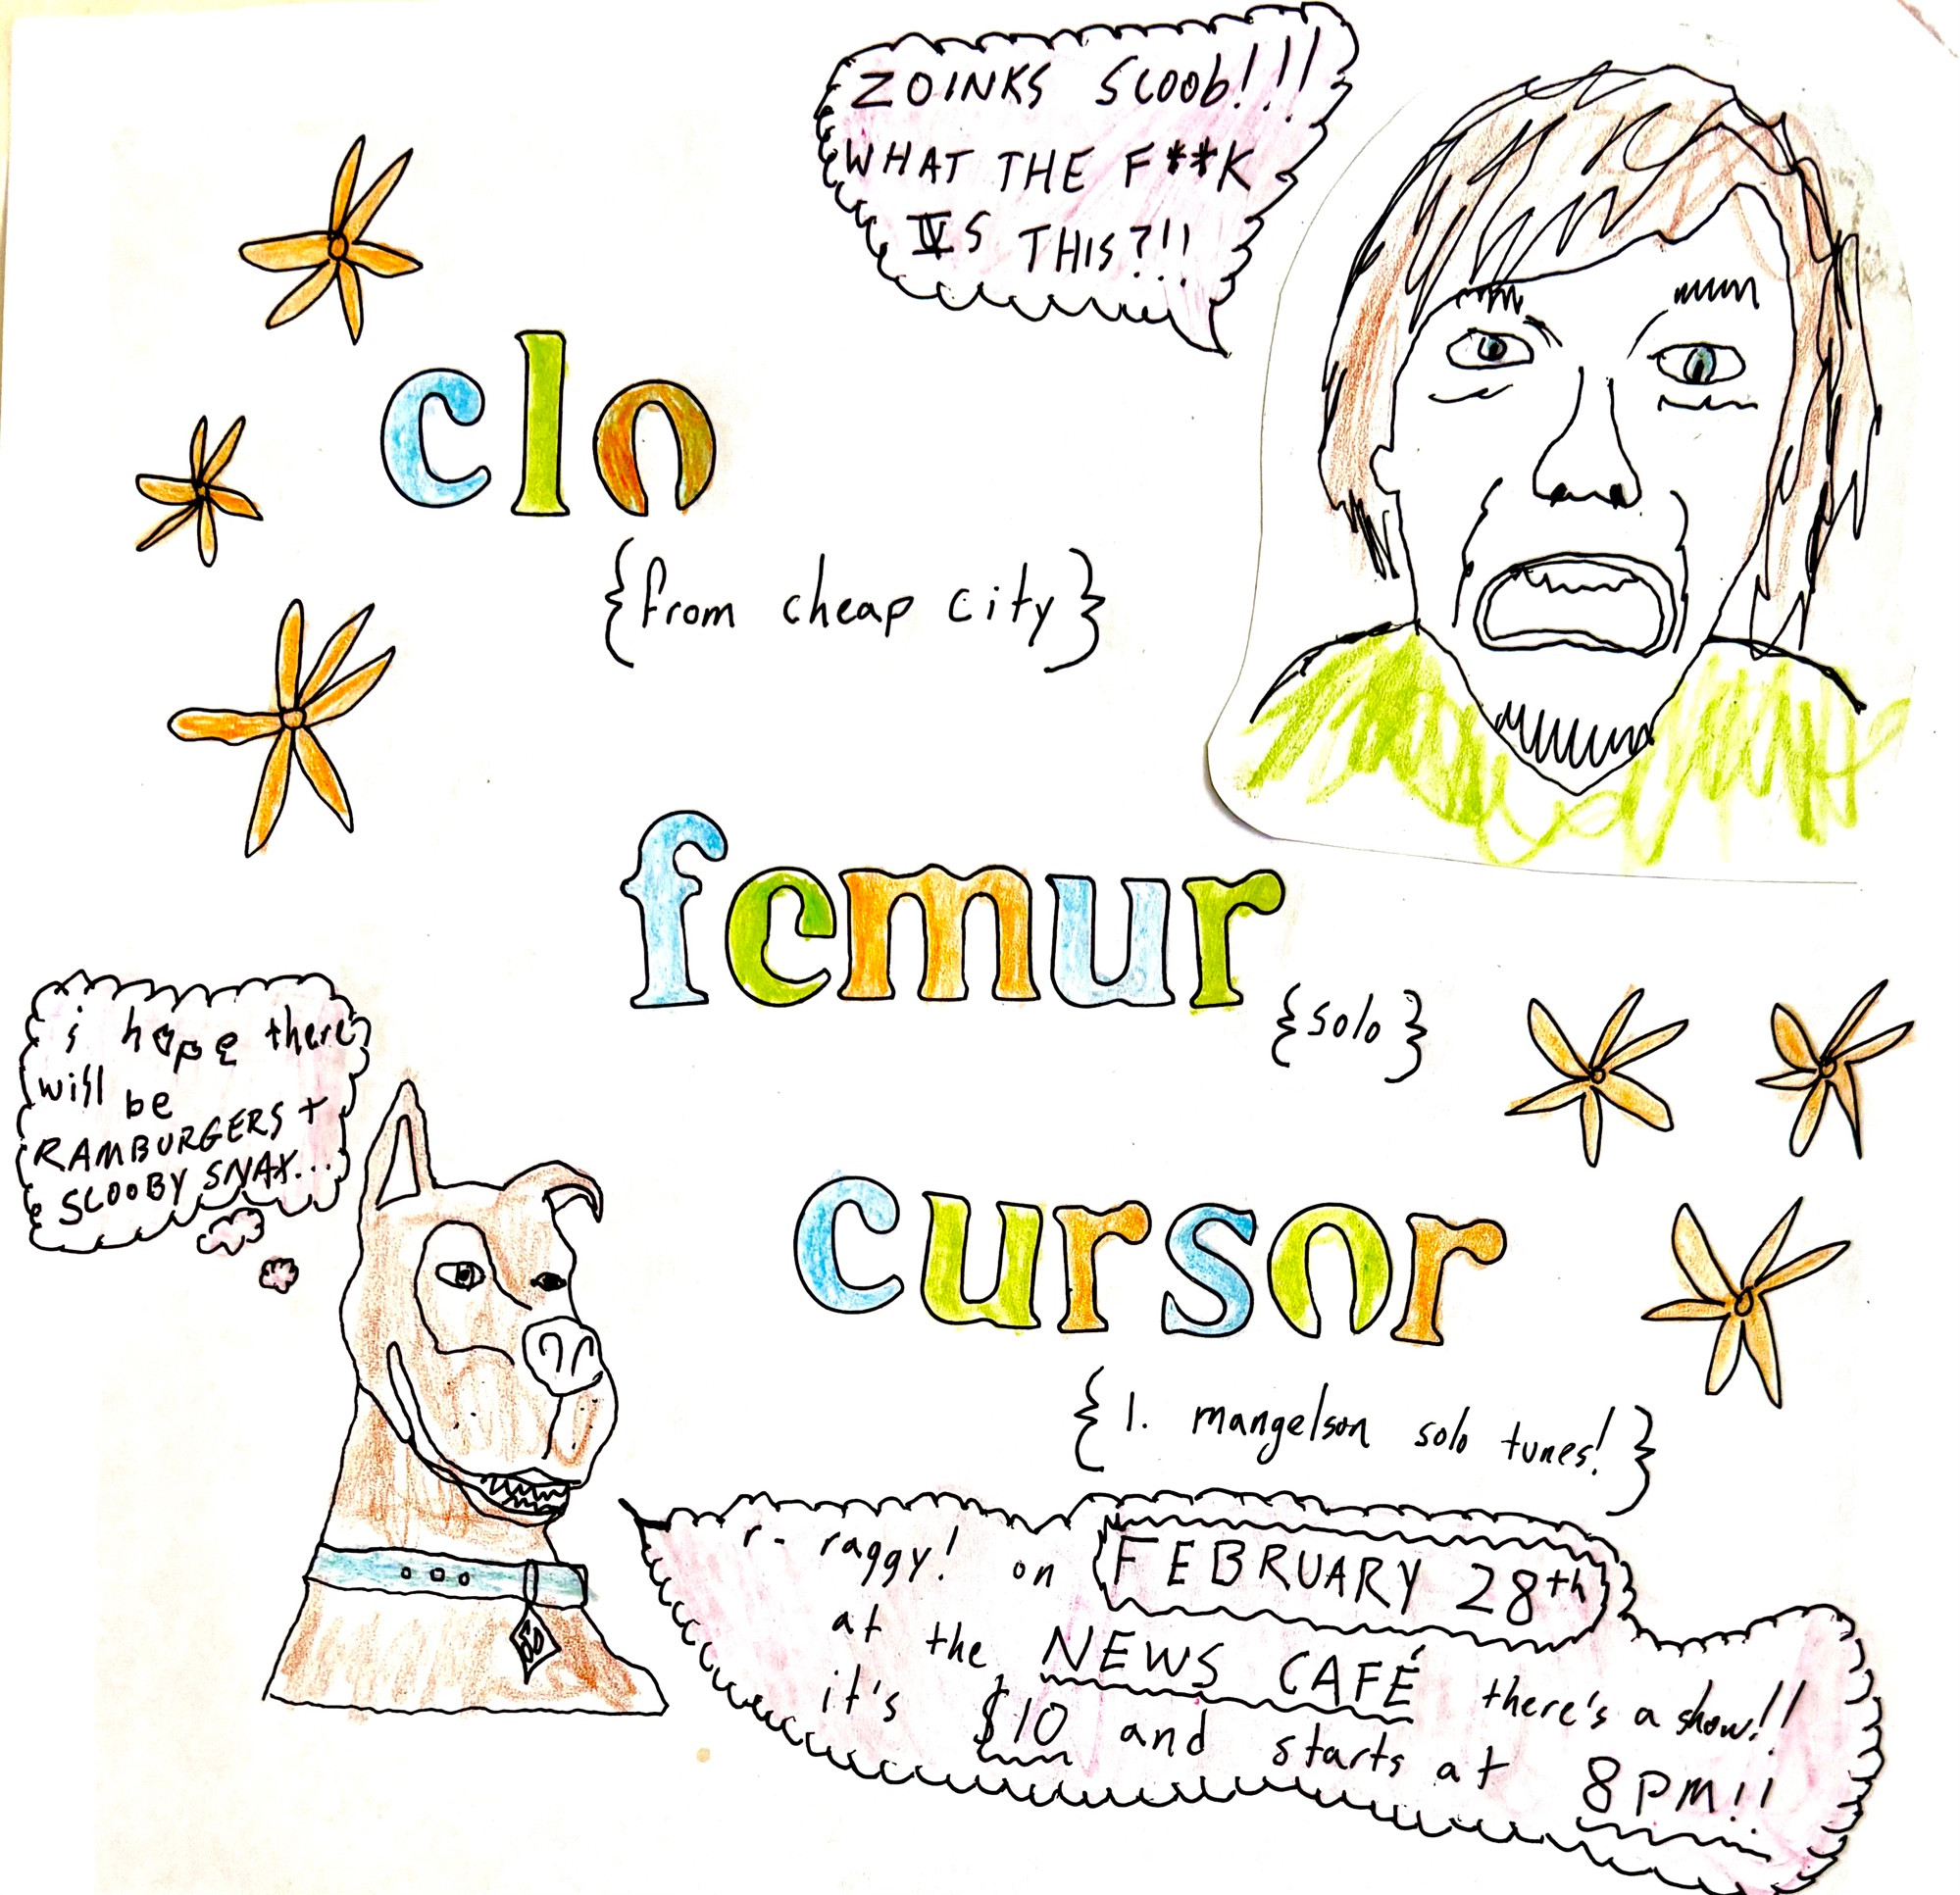 ZOINKS SCOOB!!!
WHAT THE F**K
IS THIS?!!
clo
{from cheap city}
femur
{solo}
i hope there
will be
RAMBURGERS +
SCOOBY SNAX...
cursor
{l. mangelson solo tunes!}
r- raggy! on FEBRUARY 28th
at the NEWS CAFÉ there's a show!!
it's $10 and starts at 8pm!!
SD